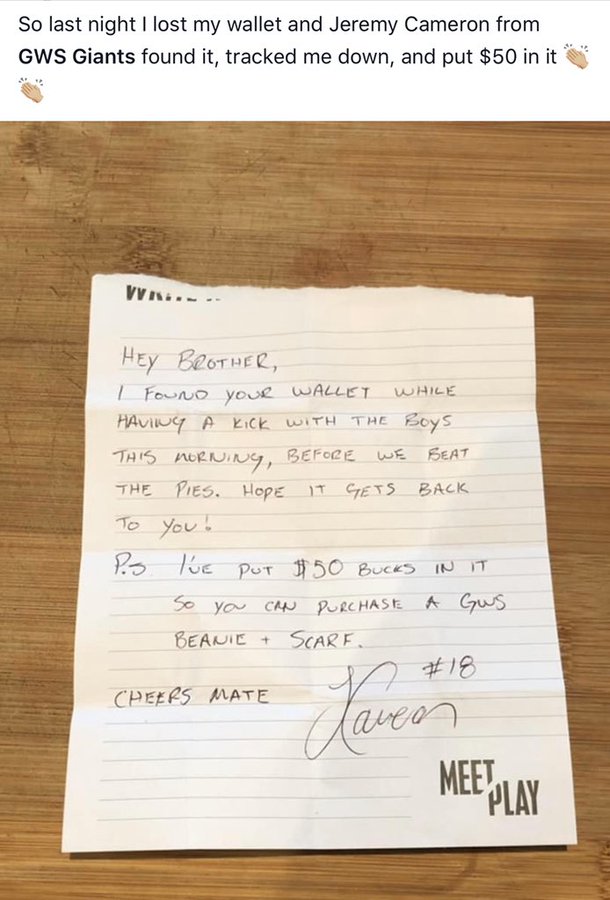 So last night I lost my wallet and Jeremy Cameron from
GWS Giants found it, tracked me down, and put $50 in it 👏🏼
👏🏼
HEY BROTHER,
I FOUND YOUR WALLET WHILE
HAVING A KICK WITH THE BOYS
THIS MORNING, BEFORE WE BEAT
THE PIES. HOPE IT GETS BACK
TO YOU!
P.S I'VE PUT $50 BUCKS IN IT
SO YOU CAN PURCHASE A GWS
BEANIE + SCARF.
#18
CHEERS MATE
MEET
PLAY